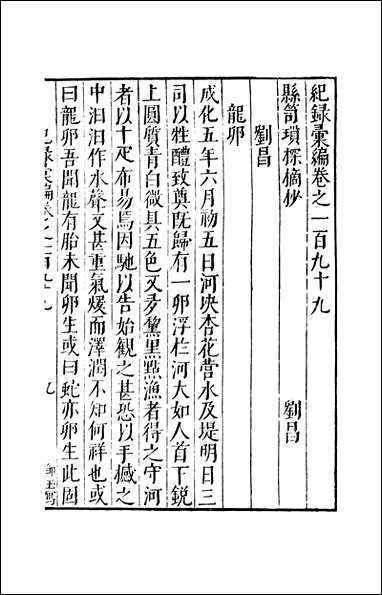 紀録彙編卷之一百九十九
縣笥瑣探摘抄
劉昌
劉昌
龍卵
成化五年六月初五日河決杏花營水及堤明日三
司以牲醴致奠既歸有一卵浮於河大如人首下銳
上圓質青白微具五色文多黧黑點漁者得之守河
者以十疋布易焉因馳以告始觀之甚恐以手撼之
中汩汩作水聲文甚重氣煖而澤潤不知何祥也或
曰龍卵吾聞龍有胎未聞卵生或曰蛇亦卵生此固
九